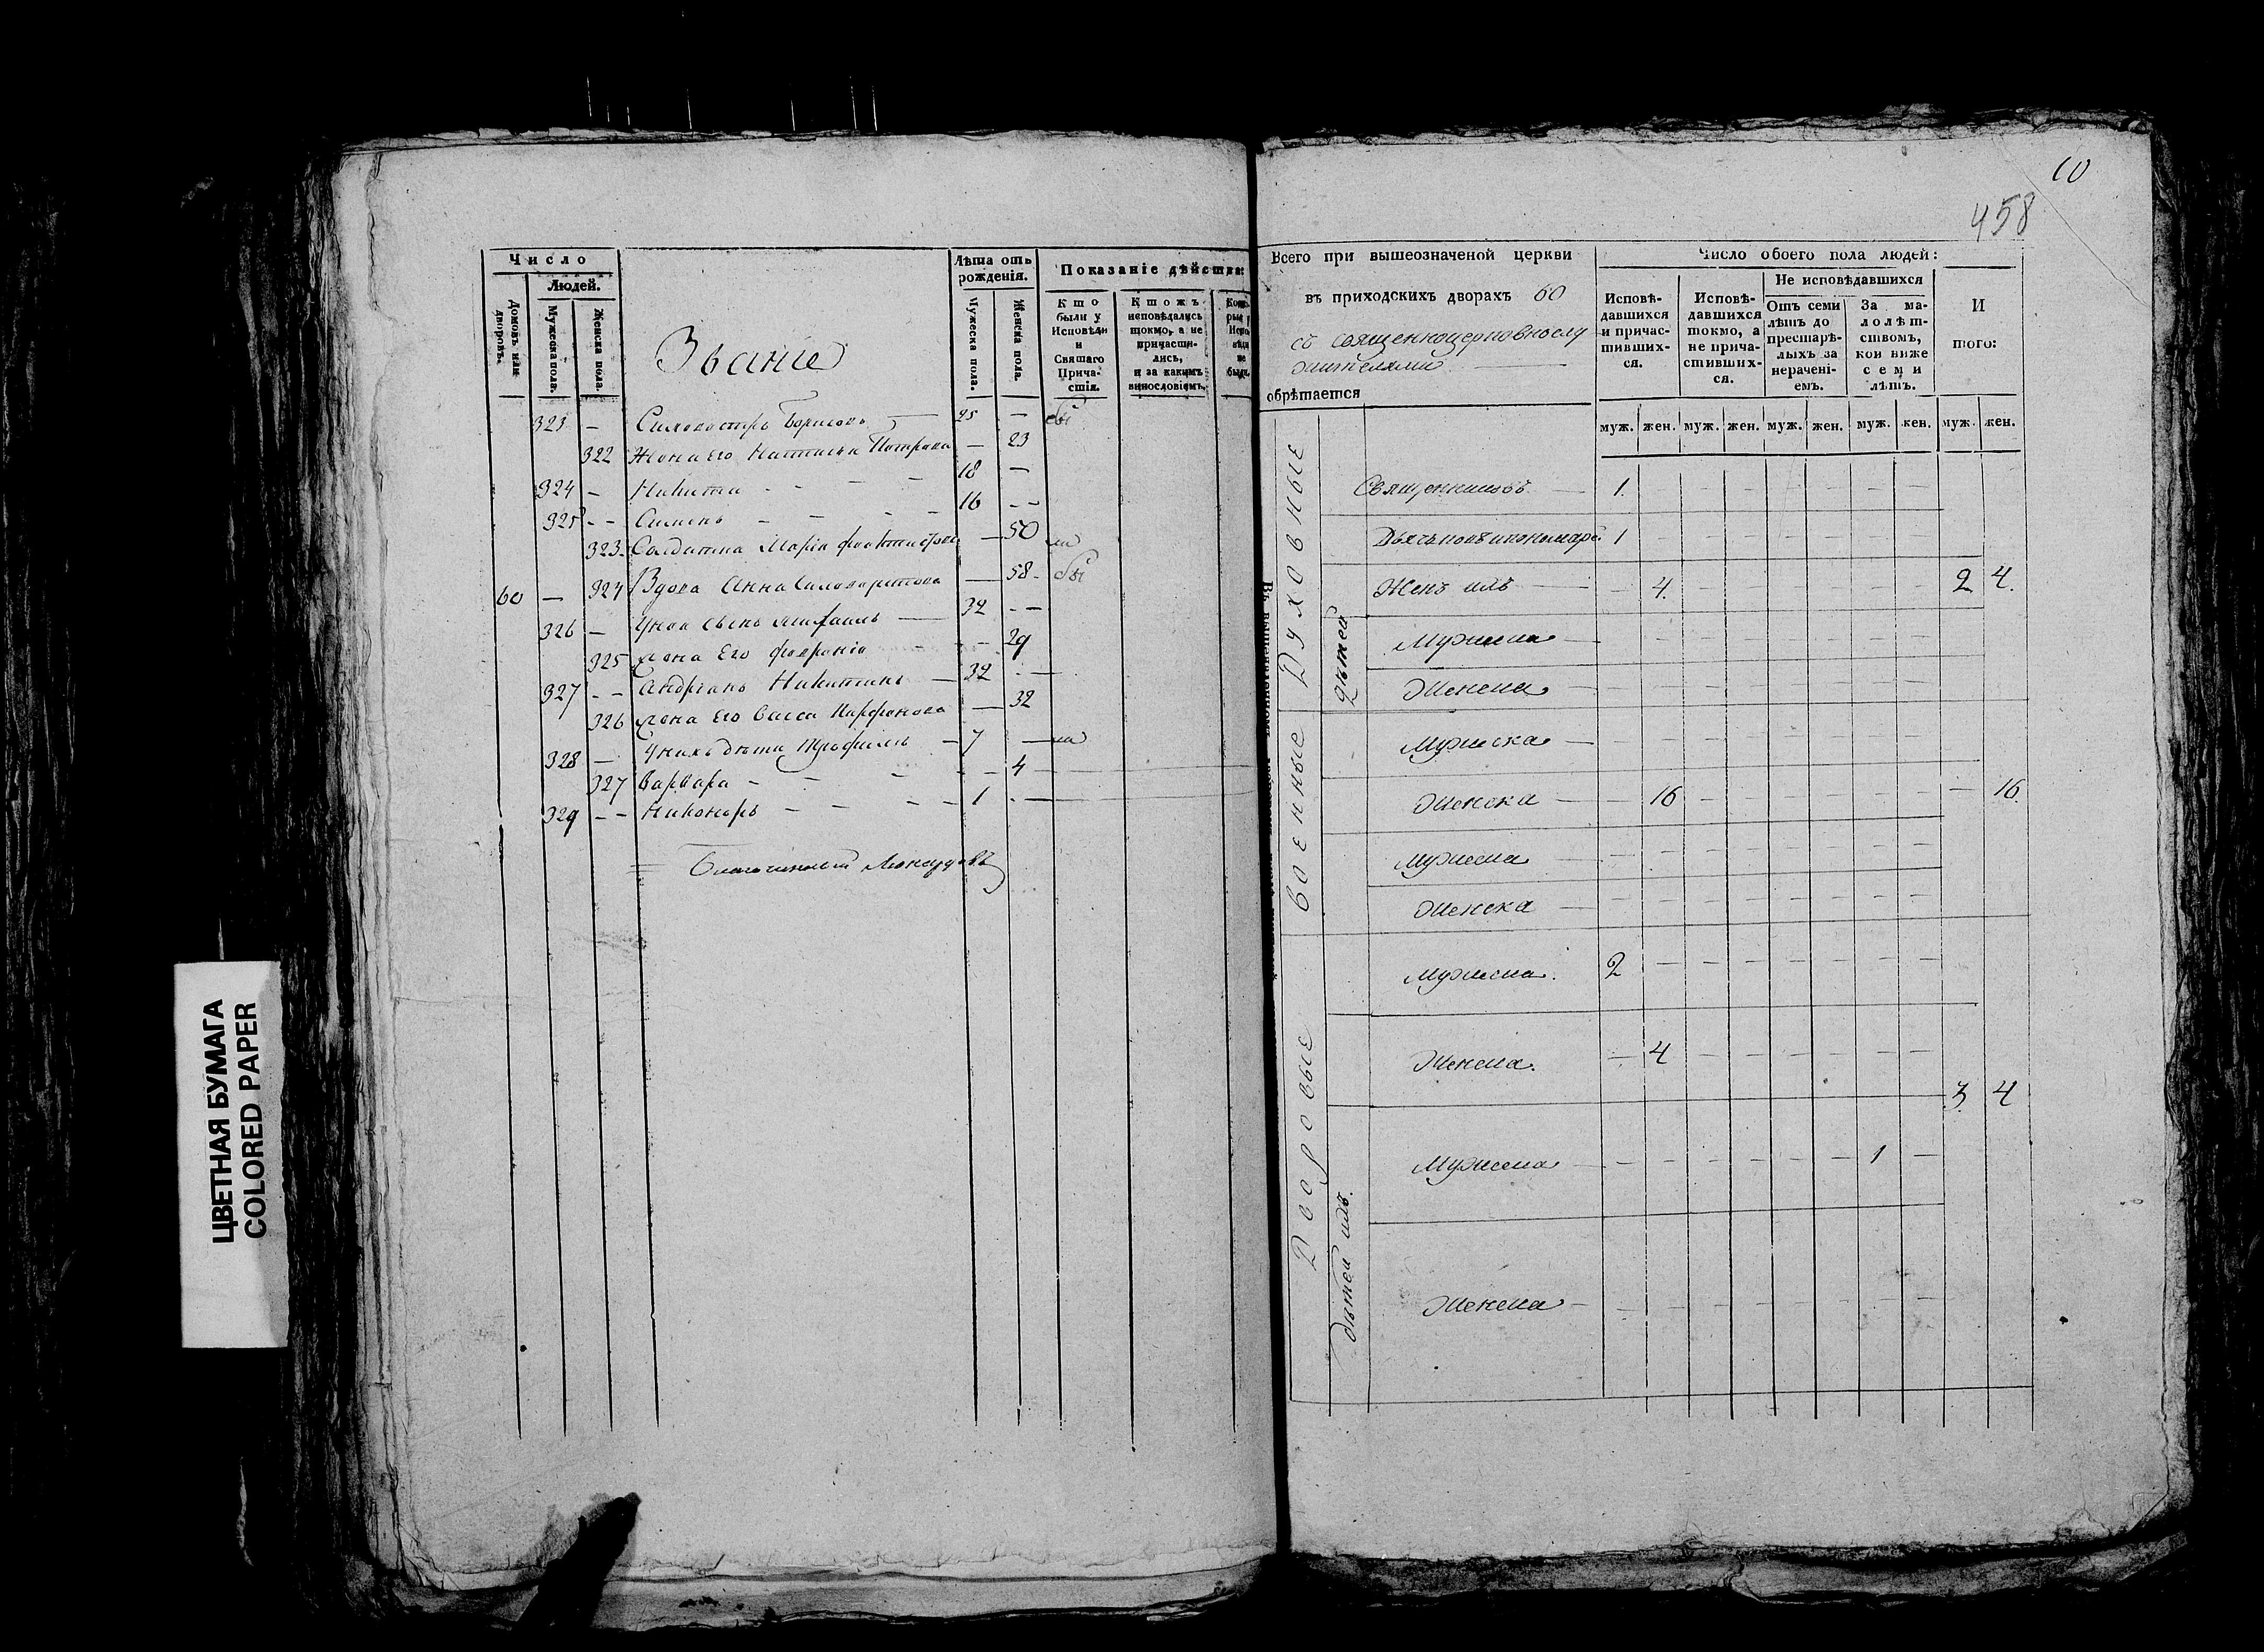 ЦВЕТНАЯ БУМАГА
COLORED PAPER
Число
Людей.
Домовъ или дворовъ.
Мужеска пола.
Женска пола.
Званіе
Лѣта отъ рожденія.
Мужеска пола.
Женска пола.
Показаніе дѣйства:
Кто были у Исповѣди и Святаго Прича-стія.
Ктожъ исповѣдались токмо, а не причасти-лись, и за какимъ винословіемъ.
323 —
Борисовъ — 25 —
322 Жена его Наталья Петрова — 23
324 — Никита - - - - 18 —
325 - - Симіонъ - - - - 16 - -
323 Солдатка Марія — 50
60 — 324 Вдова Анна — 58
326 — Унея сынъ Михаилъ — 32 - -
325 жена Его Февронія - - 29
327 - - Андріанъ Никитинъ — 32 - —
326 жена Его Васса Парфенова — 32
328 — Унихъ дѣти Трофимъ — 7 —
327 Варвара - - - - 4
329 - - Никоноръ - - - - 1
Благочинный
10
458
Всего при вышеозначеной церкви
въ приходскихъ дворахъ 60
съ священноцерковнослу
жителями —
обрѣтается
Число обоего пола людей:
Исповѣ-давшихся и причас-тивших-ся.
Исповѣ-давшихся токмо, а не прича-стивших-ся.
Не исповѣдавшихся
Отъ семи лѣтъ до престарѣ-лыхъ за нерачені-емъ.
За ма-лолѣт-ствомъ, кои ниже семи лѣтъ.
И того:
муж. жен. муж. жен. муж. жен. муж. жен. муж. жен.
Духовные
Священниковъ — 1.
Дьячковъ и пономарей 1
Женъ ихъ — 4. 2 4.
дѣтей
Мужеска —
Женска —
Военные
Мужеска —
Женска — 16 — 16.
Мужеска —
Женска —
Дворовые
Мужеска. 2
Женска. — 4
3 4
дѣтей ихъ.
Мужеска — 1 —
Женска —